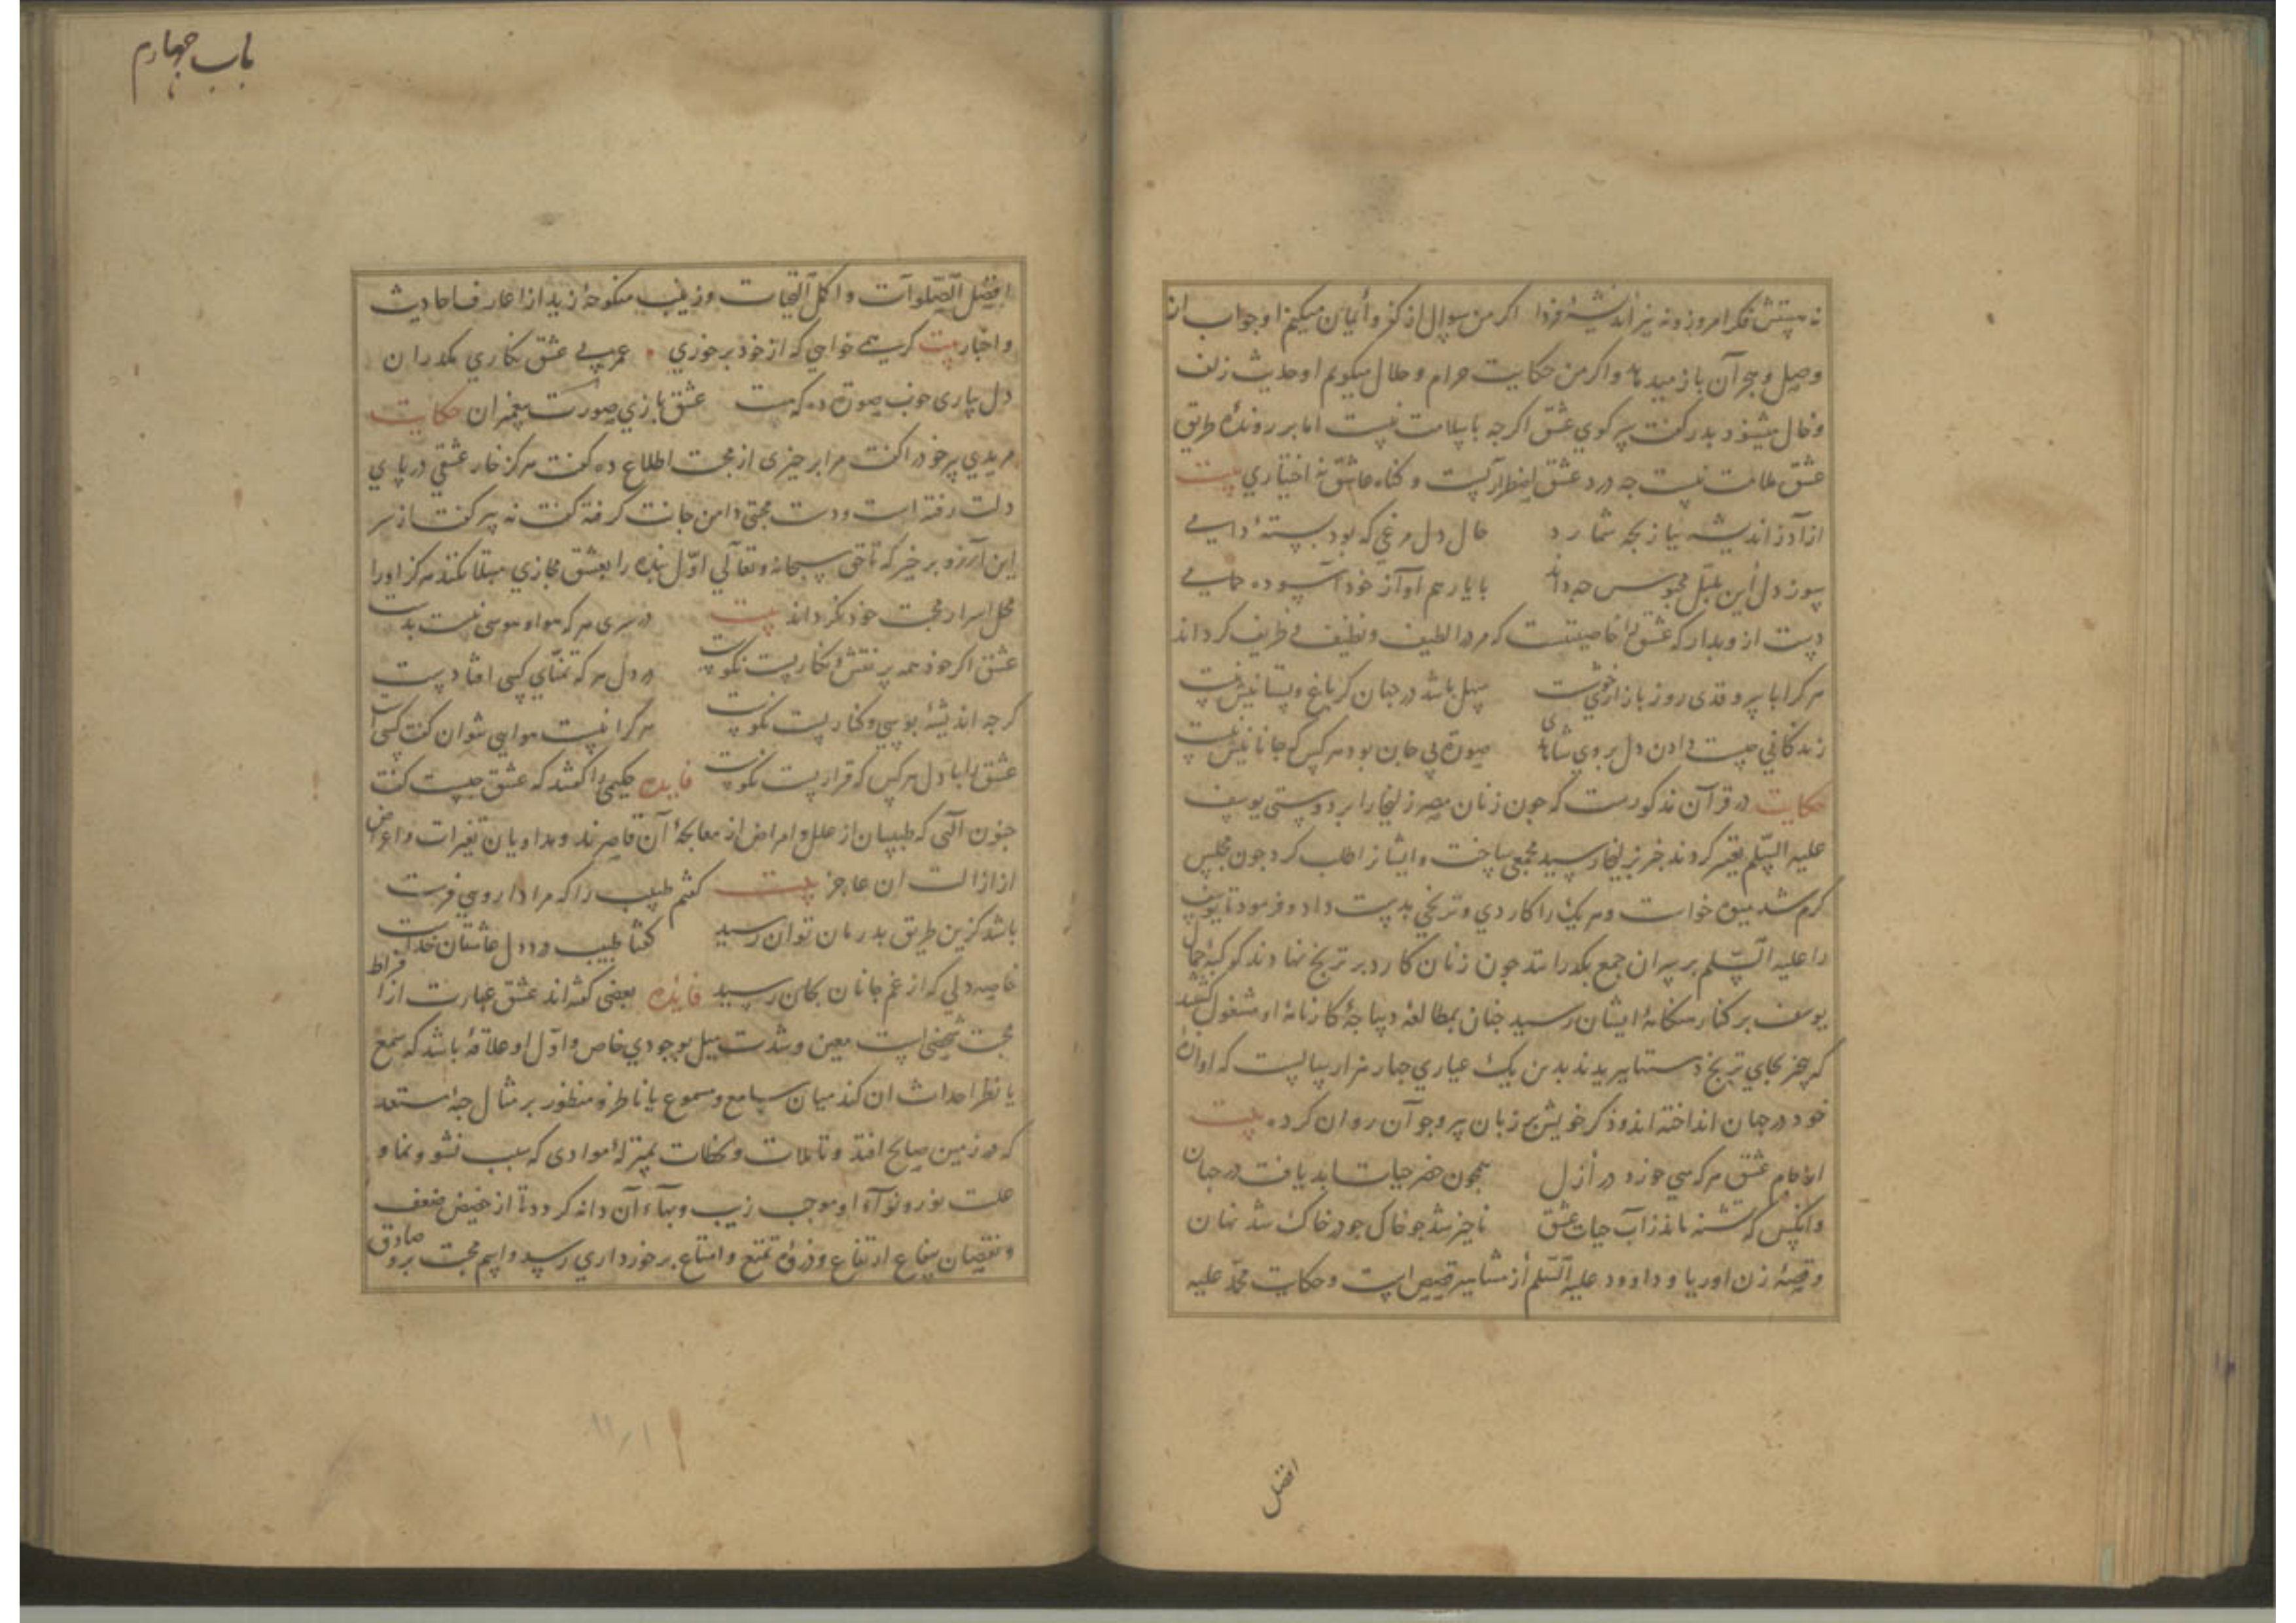 نه میتش فکر امروز و نه نیز اندیشهٔ فردا اکر من سوال از کفر و ایمان میکنم او جواب از
وصل و هجران باز میدهد واکر من حکایت حرام و حلال میکویم او حدیث زلف
و خال میشنود پدر کفت پسر کوی عشق اکرچه با سلامت نیست اما بر روندهٔ طریق
عشق ملامت نیست چه درد عشق اضطراریست و کناه عاشق نه اختیاری بیت
از آدز اندیشه نیاز بچه شمارد حال دل مرغی که بود بستهٔ دامی
سوز دل این بلبل محبوس چه داند با یار هم آواز خود آسوده حمامی
دست از و بدار که عشق را خاصیتست که مرد را لطیف و نظیف و ظریف کرداند
هر کرا با سروقدی روز بازار خوشیست سهل باشد در جهان کر باغ و بستانیش نیست
زندکانی چیست دادن دل بروی شاهدی صورة بی جان بود هر کس که جانانیش نیست
حکایت در قرآن مذکورست که چون زنان مصر زلیخا را بر دوستی یوسف
علیه السلم تعییر کردند خبر بزلیخا رسید مجمعی ساخت و ایشانرا طلب کرد چون مجلس
کرم شد میوه خواست و هر یک را کاردی و ترنجی بدست داد و فرمود تا یوسف
را علیه السلم بر سر آن جمع بکذرانند چون زنان کارد بر ترنج نهادند کوکبهٔ جمال
یوسف بر کنار سکانهٔ ایشان رسید چنان بمطالعهٔ دیباجهٔ کارنامهٔ او مشغول کشتند
که بجای ترنج دستها ببریدند بدین یک عیاری چهار هزار سالست که آوازهٔ
خود در جهان انداخته اند و ذکر خویش بر زبان پیر و جوان روان کرده بیت
از جام عشق هر که می خورد در ازل همچون خضر حیات ابد یافت در جهان
وانکس که تشنه ماند ز آب حیات عشق ناچیز شد چو خاک چو در خاک شد نهان
و قصهٔ زن اوریا و داوود علیه السلم از مشاهیر قصص است و حکایت محمد علیه
افضل
باب چهارم
افضل الصلوات و اکمل التحیات و زینب منکوحهٔ زید از اعارف احادیث
و اخبار بیت کر همی خواهی که از خود برخوری عمر بی عشق نکاری مکذران
دل بیاری خوب صورة ده که هست عشق بازی صورت پیغمبران حکایت
مریدی پیر خود را کفت مرا بر چیزی از محبت اطلاع ده کفت هرکز خار عشقی در پای
دلت رفته است و دست محبتی دامن جانت کرفته کفت نه پیر کفت از سر
این آرزو برخیز که تا حق سبحانه و تعالی اول بنده را بعشق مجازی مبتلا نکند هرکز او را
محل اسرار محبت خود نکرداند بیت در سری هر که هوا و هوسی نیست بدست
عشق اکر خود همه بر نقش و نکاریست نکوست در دل هر که تمنای کسی افتادیست
کرچه اندیشهٔ بوسی و کناریست نکوست هر کرا نیست هوایی نتوان کفت کسی است
عشق را با دل هر کس که قراریست نکوست فایده حکیمی را کفتند که عشق چیست کفت
جنون الهی که طبیبان از علل و امراض از معالجهٔ آن قاصرند و مداویان تغیرات و اعراض
از ازالت ان عاجز بیت کفتم طبیب را که مرا داروی فرست
باشد کزین طریق بدرمان توان رسید کفتا طبیب درد دل عاشقان خداست
خاصه دلی که از غم جانان بجان رسید فایده بعضی کفته اند عشق عبارت از افراط
محبت شخصی است معین و شدت میل بوجودی خاص و اول او علاقه باشد که سمع
یا نظر احداث ان کند میان سامع و مسموع یا ناظر و منظور بر مثال حبهٔ مستعد
که در زمین صالح افتد و تاملات و تمنات بمنزلهٔ موادی که سبب نشو و نما و
علت نور و نوآء او موجب زیب و بهآء آن دانه کردد تا از حضیض ضعف
و نقصان بیفاع ارتفاع و ذروهٔ تمتع و امتاع برخورداری رسید و اسم محبت برو صادق